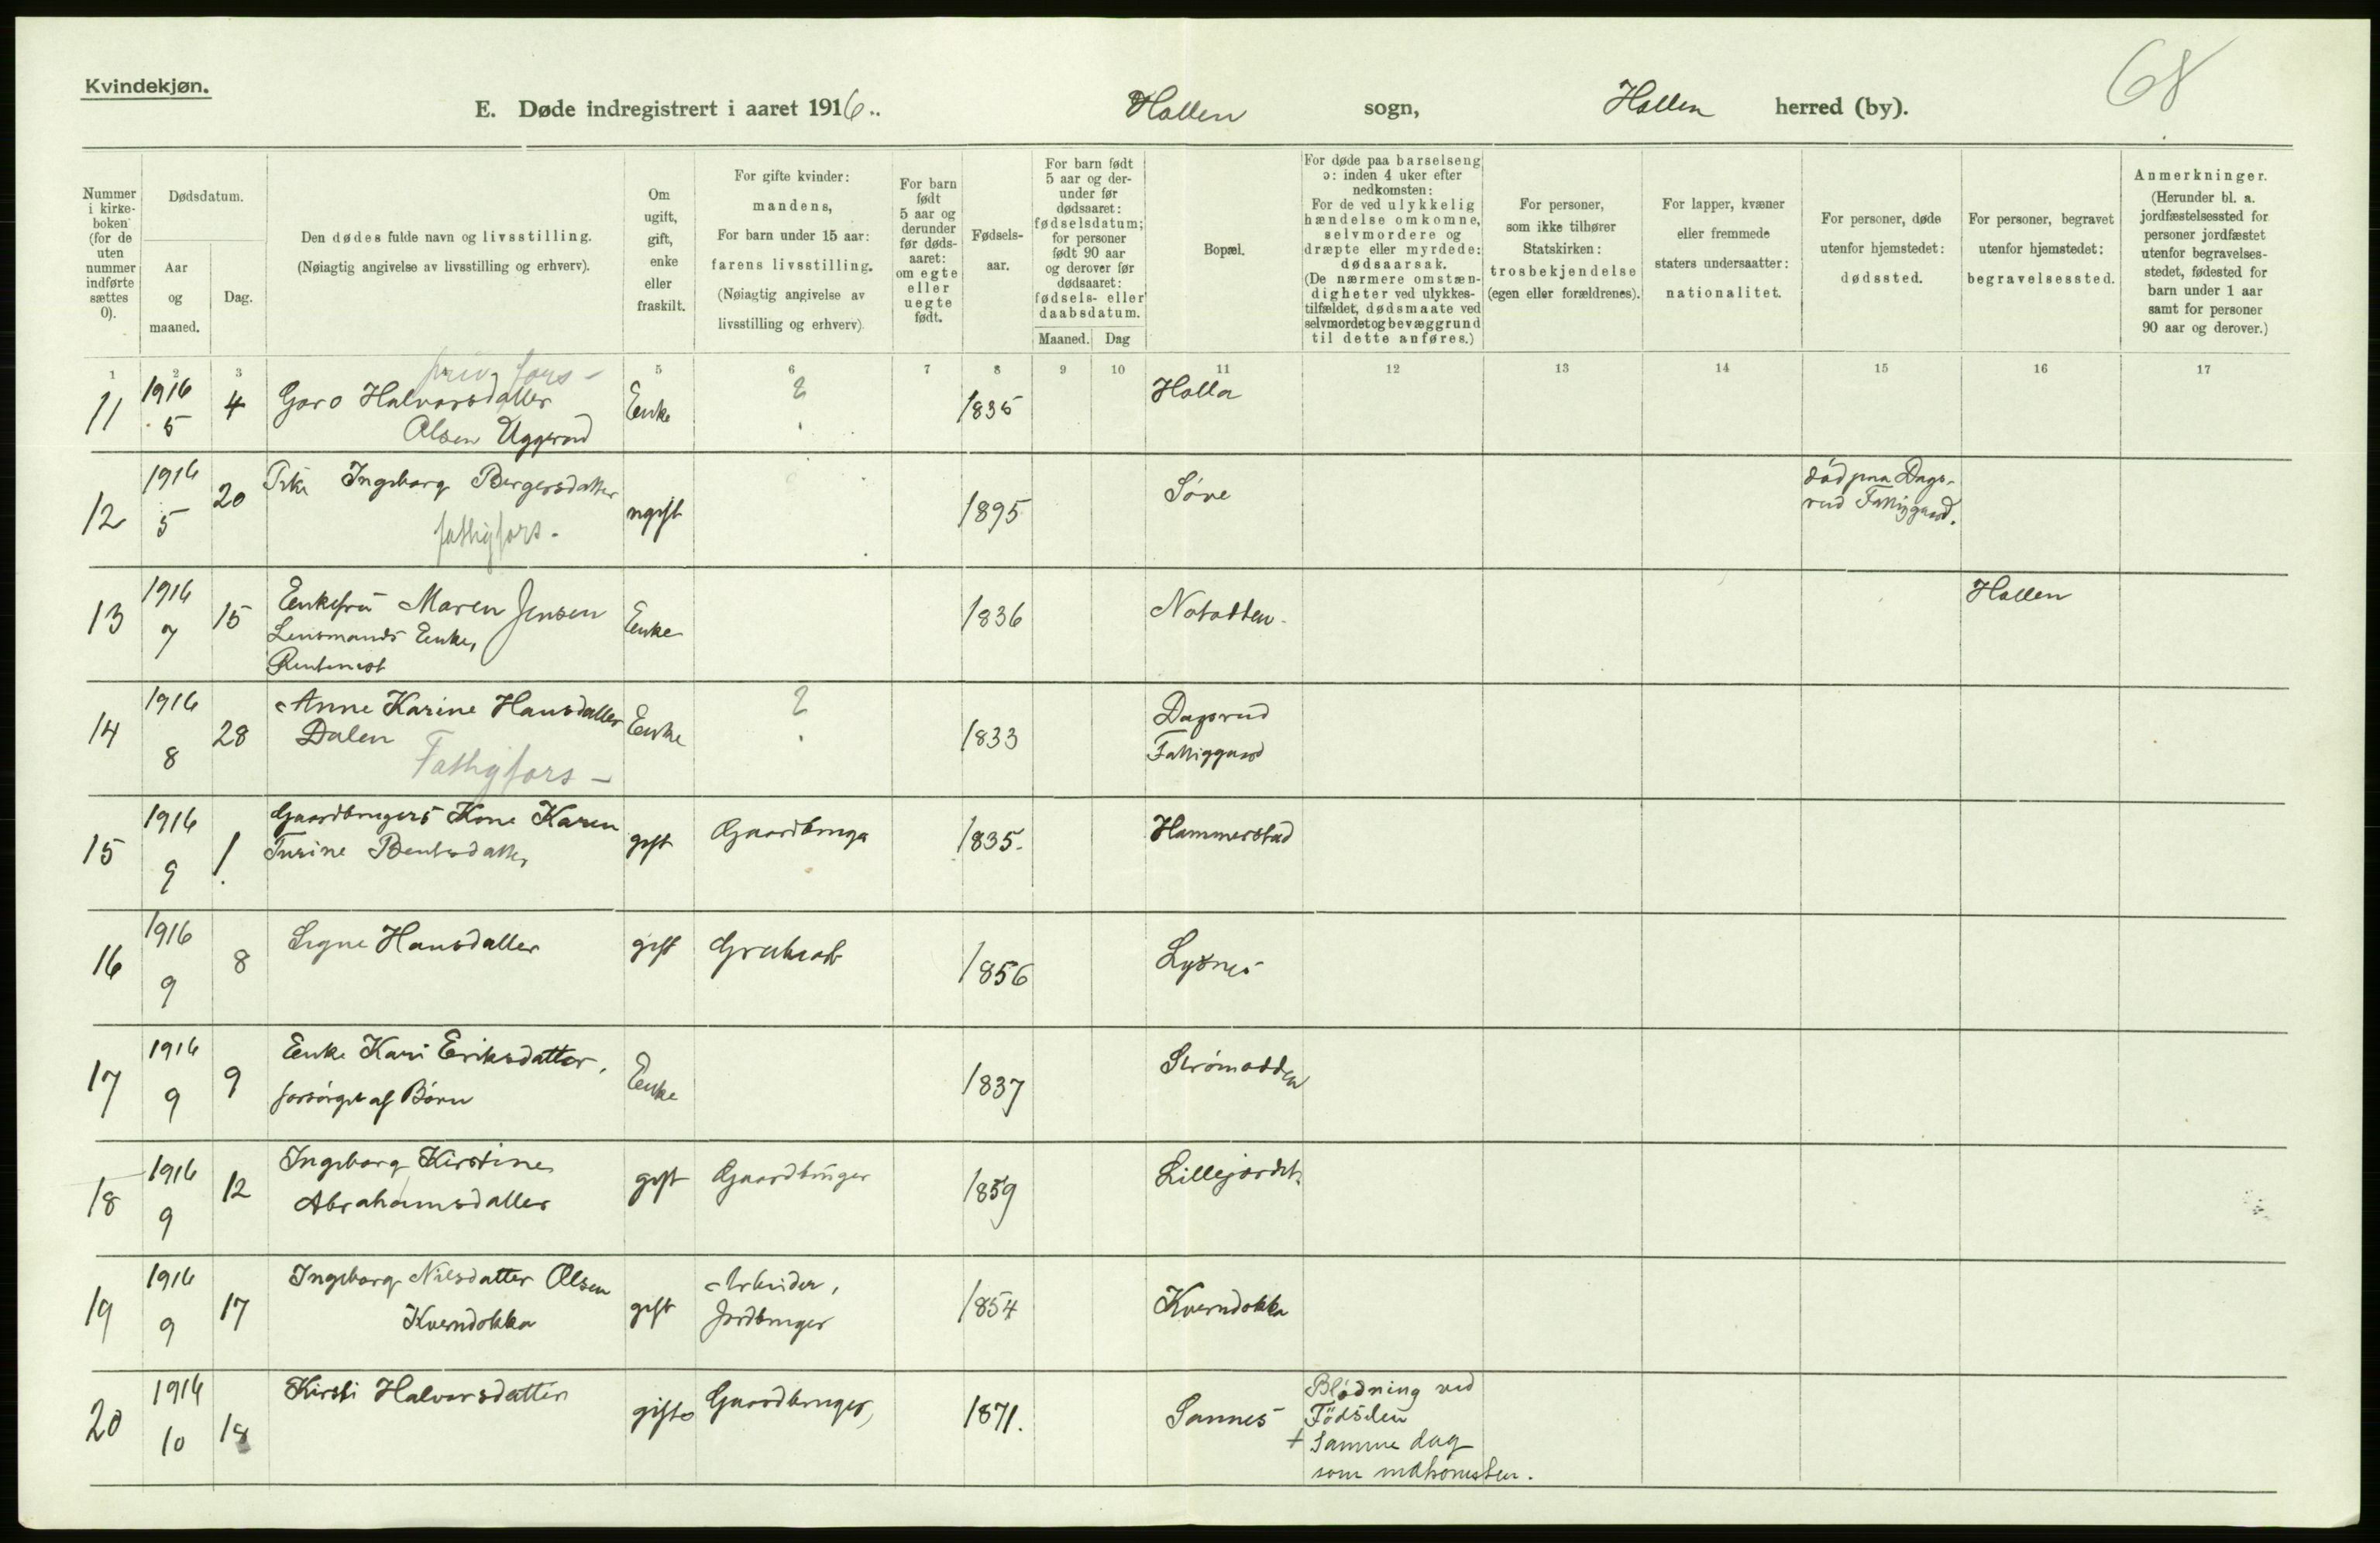 Kvindekjøn.
68
E. Døde indregistrert i aaret 1916.. Hollen sogn, Hollen herred (by).
Nummer i kirkeboken (for de uten nummer indførte sættes 0).
Dødsdatum.
Aar og maaned.
Dag.
Den dødes fulde navn og livsstilling.
(Nøiagtig angivelse av livsstilling og erhverv).
Om ugift, gift, enke eller fraskilt.
For gifte kvinder:
mandens,
For barn under 15 aar:
farens livsstilling.
(Nøiagtig angivelse av
livsstilling og erhverv).
For barn født 5 aar og derunder før dødsaaret: om egte eller uegte født.
Fødselsaar.
For barn født 5 aar og derunder før dødsaaret: fødselsdatum; for personer født 90 aar og derover før dødsaaret: fødsels- eller daabsdatum.
Maaned. Dag
Bopæl.
For døde paa barselseng
ɔ: inden 4 uker efter
nedkomsten:
For de ved ulykkelig
hændelse omkomne,
selvmordere og
dræpte eller myrdede:
dødsaarsak.
(De nærmere omstæn-
digheter ved ulykkes-
tilfældet, dødsmaate ved
selvmordet og bevæggrund
til dette anføres.)
For personer,
som ikke tilhører
Statskirken:
trosbekjendelse
(egen eller forældrenes).
For lapper, kvæner
eller fremmede
staters undersaatter:
nationalitet.
For personer, døde
utenfor hjemstedet:
dødssted.
For personer, begravet
utenfor hjemstedet:
begravelsessted.
Anmerkninger.
(Herunder bl. a.
jordfæstelsessted for
personer jordfæstet
utenfor begravelses-
stedet, fødested for
barn under 1 aar
samt for personer
90 aar og derover.)
1 2 3 5 6 7 8 9 10 11 12 13 14 15 16 17
priv. fors -
11 1916 5 4 Goro Halvorsdatter Enke ? 1835 Holla
Olsen Uggerud
12 1916 5 20 Pike Ingeborg Bergersdatter ugift 1895 Söve död paa Dags-
rud Fattiggaard.
fattigfors.
13 1916 7 15 Enkefru Maren Jensen Enke 1836 Notodden Hollen
Lensmands Enke,
14 1916 8 28 Anne Karine Hansdatter Enke ? 1833 Dagsrud
Dalen Fattiggaard
Fattigfors -
15 1916 9 1 Gaardbrugers Kone Karen gift Gaardbruger 1835. Hammerstad
Turine Bentsdatter
16 1916 9 8 Signe Hansdatter gift 1856 Lysnes
17 1916 9 9 Enke Kari Eriksdatter, Enke 1837 Strömodden
forsörget af Börn
18 1916 9 12 Ingeborg Kirstine gift Gaardbruger 1859 Lillejordet.
Abrahamsdatter
19 1916 9 17 Ingeborg Nilsdatter Olsen gift Arbeider, 1854 Kverndokka
Kverndokka Jordbruger
20 1916 10 18 Kirsti Halvorsdatter gift Gaardbruger, 1871. Sannes Blödning ved
Födselen
+ Samme dag
som nedkomsten.